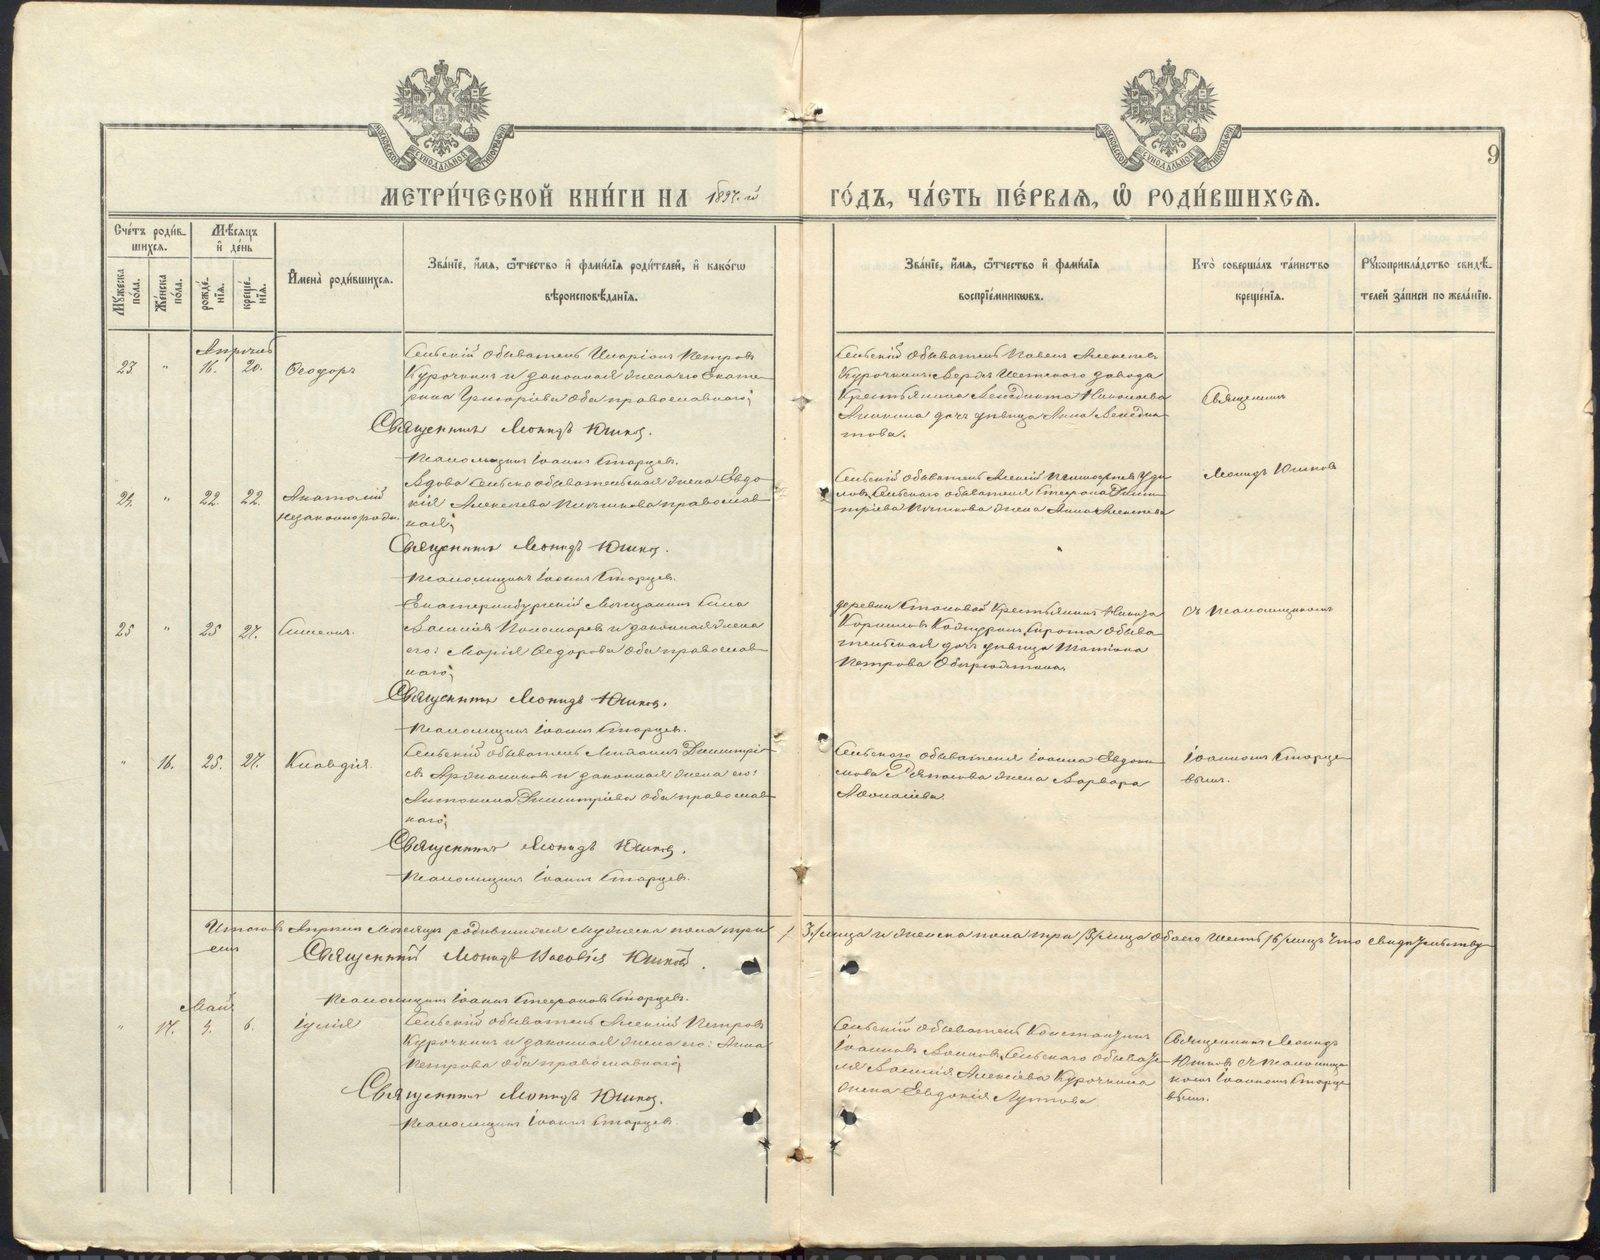 МОСКОВСКОЙ СѴНОДАЛЬНОЙ ТИПОГРАФІИ
МОСКОВСКОЙ СѴНОДАЛЬНОЙ ТИПОГРАФІИ
9
МЕТРИ́ЧЕСКОЙ КНИ́ГИ НА 1897.й ГО́ДЪ, ЧА́СТЬ ПЕ́РВАЯ, Ѡ РОДИ́ВШИХСЯ.
Сче́тъ роди́в-
шихся.
Мѣсяцъ
и де́нь
Му́жеска
по́ла.
Же́нска
по́ла.
рожде́-
нїя.
креще́-
нїя.
И҆мена̀ роди́вшихся.
Зва́нїе, и҆́мя, ѻ҆́тчество и҆ фами́лїя роди́телей, и҆ како́гѡ
вѣроисповѣ́данїя.
Зва́нїе, и҆́мя, ѻ҆́тчество и҆ фами́лїя
воспрїе́мникѡвъ.
Кто̀ соверша́лъ та́инство
креще́нїя.
Рꙋкоприкла́дство свидѣ́-
телей за́писи по жела́нїю.
Апрѣль
23. " 16. 20. Ѳеодоръ
Сельскій обыватель Иларіонъ Петровъ
Курочкинъ и законная жена его Екате-
рина Григорьева оба православнаго;
Священникъ Леонидъ Юшковъ.
Псаломщикъ Іоаннъ Старцевъ.
Сельскій обыватель Павелъ Алексѣевъ
Курочкинъ Верхъ Исетскаго завода
Крестьянина Венедикта Николаева
дочь дѣвица Анна Венедик-
това.
Священникъ
Леонидъ Юшковъ
24. " 22. 22. Анатолій
незаконнорожд.
Вдова сельско обывательская жена Евдо-
кія Алексѣева православ-
ная;
Священникъ Леонидъ Юшковъ.
Псаломщикъ Іоаннъ Старцевъ.
Сельскій обыватель Алексій
сельскаго обывателя Стефана Дими-
тріева жена Анна Алексѣева
25 " 25 27. Симеонъ.
Екатеринбургскій Мѣщанинъ Сила
Васильевъ Пономаревъ и законная жена
его: Марія Ѳедорова оба православ-
наго;
Священникъ Леонидъ Юшковъ.
Псаломщикъ Іоаннъ Старцевъ.
деревни Становой Крестьянинъ
Корниловъ сирота обыва-
тельская дочь дѣвица Татіана
Петрова
съ Псаломщикомъ
" 16. 25. 27. Клавдія.
Сельскій обыватель Михаилъ Димитрі-
евъ и законная жена его:
Антонина Димитріева оба православ-
наго;
Священникъ Леонидъ Юшковъ.
Псаломщикъ Іоаннъ Старцевъ.
Сельскаго обывателя Іоанна Евдоки-
мова жена Варвара
Аѳонасіева.
Іоанномъ Старце-
вымъ.
Итого въ Апрѣлѣ Мѣсяцѣ родившихся мужеска пола три /3/ лица и женска пола три /3/ лица обоего шесть /6/ лицъ что свидѣтельству-
емъ Священникъ Леонидъ Юшковъ.
Псаломщикъ Іоаннъ Стефановъ Старцевъ.
Май
" 17. 6. Іулія
Сельскій обыватель Алексій Петровъ
Курочкинъ и законная жена его: Анна
Петрова оба православнаго;
Священникъ Леонидъ Юшковъ.
Псаломщикъ Іоаннъ Старцевъ.
Сельскій обыватель Константинъ
Іоанновъ сельскаго обывате-
ля Василія Алексѣева Курочкина
жена Евдокія
Священникъ Леонидъ
Юшковъ съ Псаломщи-
комъ Іоанномъ Старце-
вымъ.